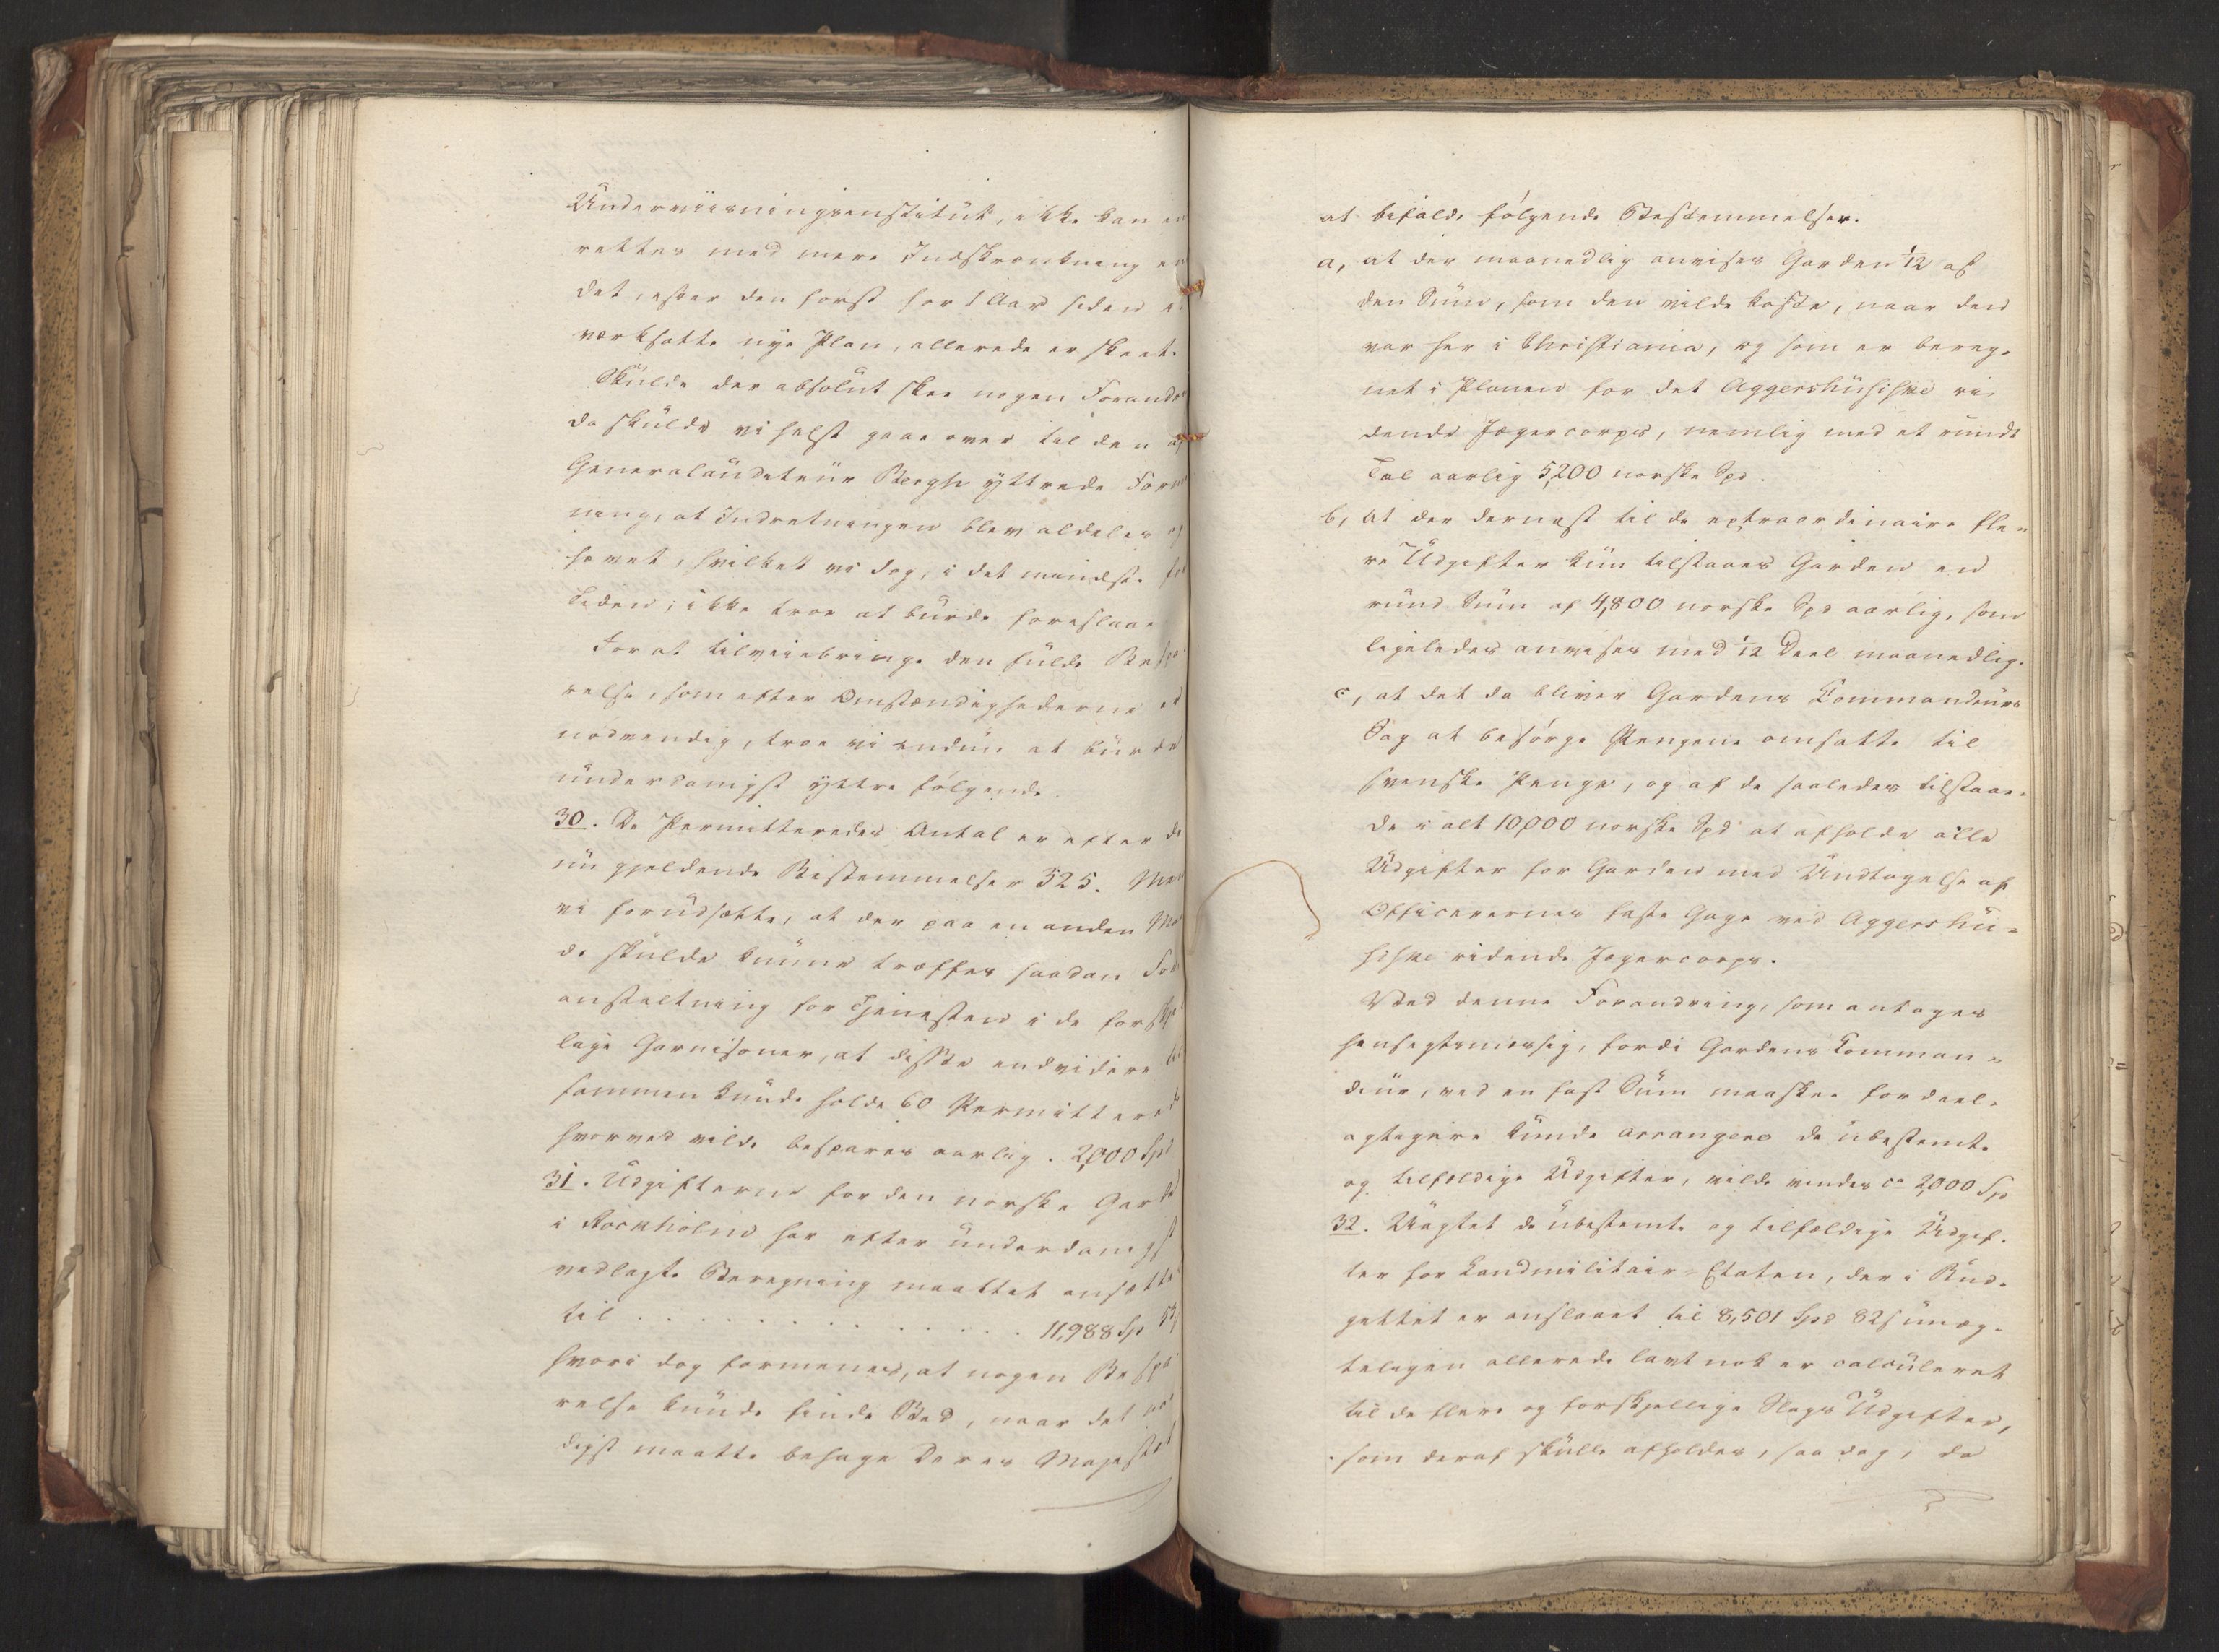 Underviisningsinstitut, ikke kan ei
rettes med mere Indskrænkning en
det, efter den først for 1 Aar siden i
værksatte nye Plan, allerede er skeet.
Skulde der absolut skee nogen Forandr
da skulde vi helst gaae over til den af
Generalauditeur Bergh yttrede Form
ning, at Indretningen blev aldeles op
hævet, hvilket vi dog, i det mindste for
Tiden, ikke troe at burde foreslaae
For at tilveiebringe den fulde Bespa
relse, som efter Omstændighederne er
nødvendig, troe vi endnu at burde
underdanigst yttre følgende.
30. De Permitteredes Antal er efter de
nu gjeldende Bestemmelser 325. Men
vi forudsætte, at der paa en anden Maa
de skulde kunne træffes saadan For
anstaltning for Tjenesten i de forskjel
lige Garnisoner, at disse endvidere til
sammen kunde holde 60 Permitterede
hvorved vilde bespares aarlig . 2,000 Spd
31. Udgifterne for den norske Garde
i Stockholm har efter underdanigst
vedlagte Beregning maattet ansættes
til . . . . . . . . . . . . . . 11,988 Sp 53
hvori dog formenes, at nogen Bespa
relse kunde finde Sted, naar det naa
digst maatte behage Deres Majestæt
at bifalde følgende Bestemmelser.
a, at der maanedlig anvises Garden 1/12 af
den Sum, som den vilde koste, naar den
var her i Christiania, og som er bereg-
net i Planen for det Aggershusiske ri-
dende Jægercorps, nemlig med et rundt
Tal aarlig 5,200 norske Spd.
b, at der dernæst til de extraordinaire fle-
re Udgifter kun tilstaaes Garden en
rund Sum af 4,800 norske Spd aarlig, som
ligeledes anvises med 1/12 Deel maanedlig.
c, at det da bliver Gardens Commandeurs
Sag at besørge Pengene omsatte til
svenske Penge, og af de saaledes tilstaae-
de i alt 10,000 norske Spd at afholde alle
Udgifter for Garden med Undtagelse af
Officerernes faste Gage ved Aggershu-
siske ridende Jægercorps.
Ved denne Forandring, som antages
hensigtsmæssig, fordi Gardens Comman-
deur, ved en fast Sum maaskee fordeel-
agtigere kunde arrangere de ubestemte
og tilfældige Udgifter, vilde vindes ca 2,000 Sp
32. Uagtet de ubestemte og tilfældige Udgif-
ter for Landmilitair-Etaten, der i Bud-
gettet er anslaaet til 8,501 Spd 82 s unæg-
teligen allerede lavt nok er calculeret
til de flere og forskjellige Slags Udgifter,
som deraf skulle afholdes, saa dog, da